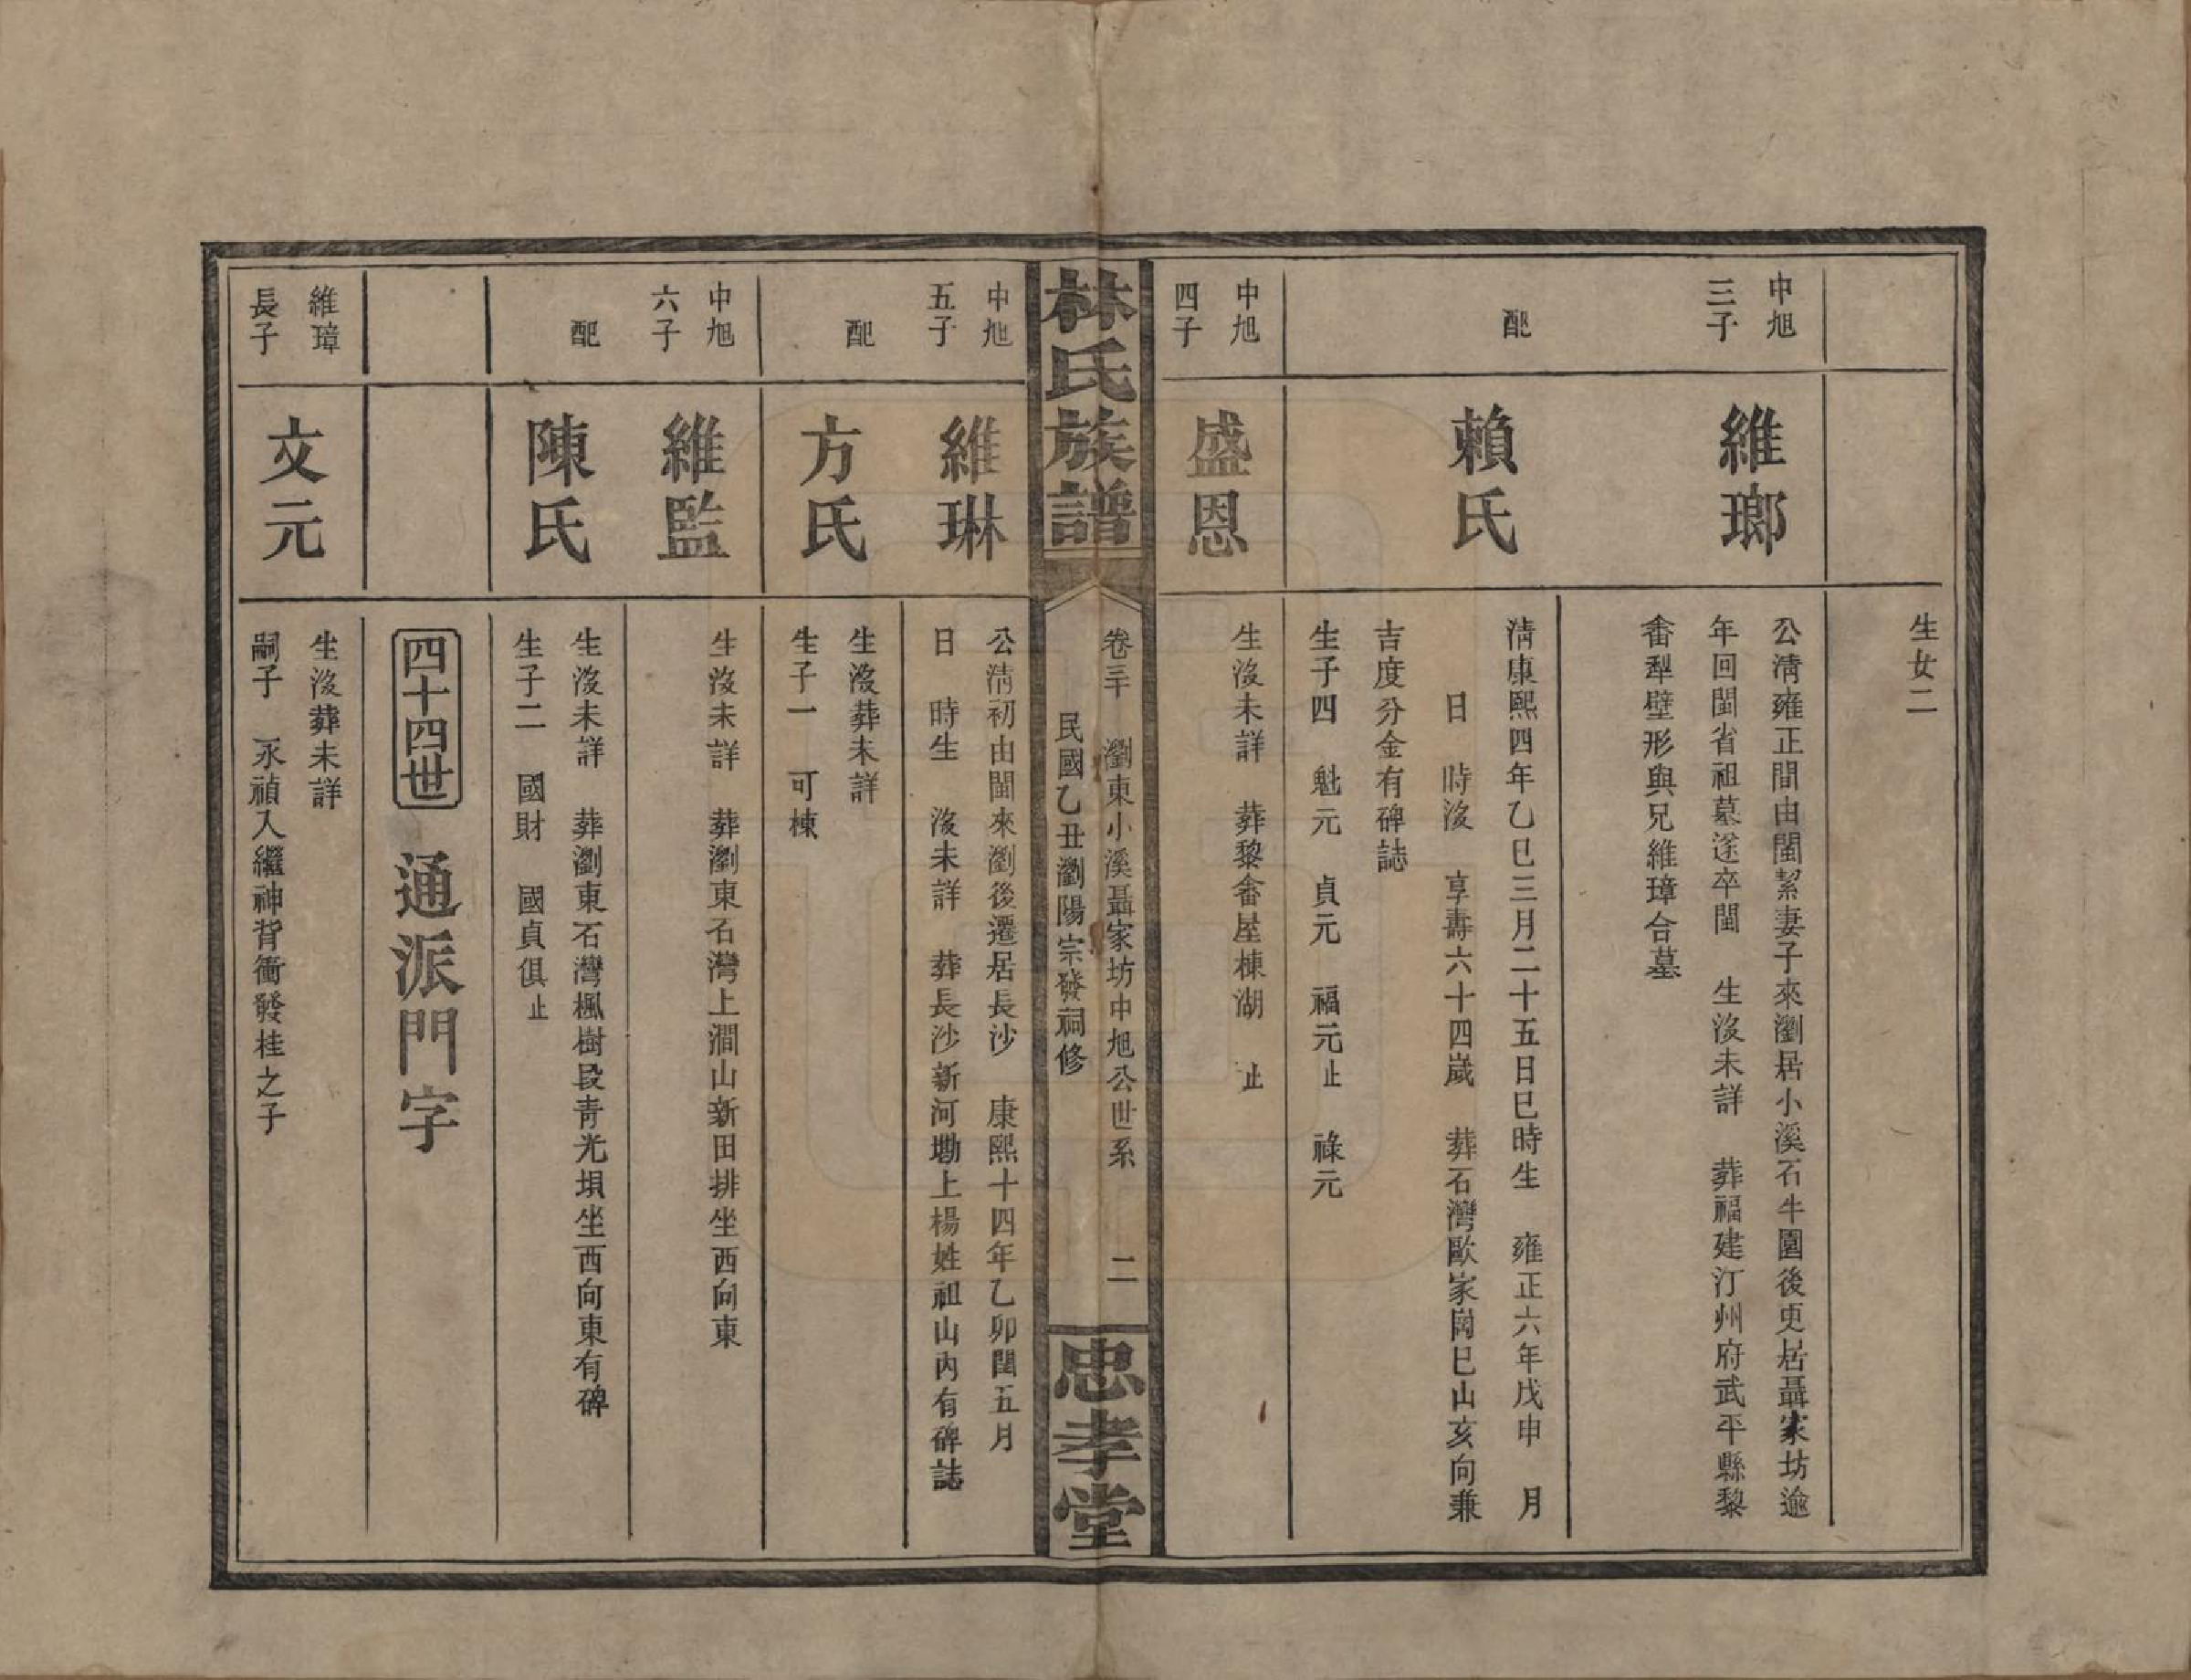 生女二
中旭
三子
維瑯
公淸雍正間由閩絜妻子來瀏居小溪石牛園後更居聶家坊逾
年回閩省祖墓遂卒閩　生沒未詳　葬福建汀州府武平縣黎
畬犁壁形與兄維璋合墓
配
賴氏
淸康熙四年乙巳三月二十五日巳時生　雍正六年戊申　月
日　時沒　享壽六十四歲　葬石灣歐家崗巳山亥向兼
吉度分金有碑誌
生子四　魁元　貞元　福元止　祿元
中旭
四子
盛恩
生沒未詳　葬黎畬屋棟湖　止
林氏族譜
卷三十　瀏東小溪聶家坊中旭公世系　二
民國乙丑瀏陽宗發祠修
忠孝堂
中旭
五子
維琳
公淸初由閩來瀏後遷居長沙　康熙十四年乙卯閏五月
日　時生　沒未詳　葬長沙新河塅上楊姓祖山內有碑誌
配
方氏
生沒葬未詳
生子一　可棟
中旭
六子
維監
生沒未詳　葬瀏東石灣上澗山新田排坐西向東
配
陳氏
生沒未詳　葬瀏東石灣楓樹段靑光垻坐西向東有碑
生子二　國財　國貞俱止
四十四世　通派門字
維璋
長子
文元
生沒葬未詳
嗣子　永禎入繼神背衝發桂之子